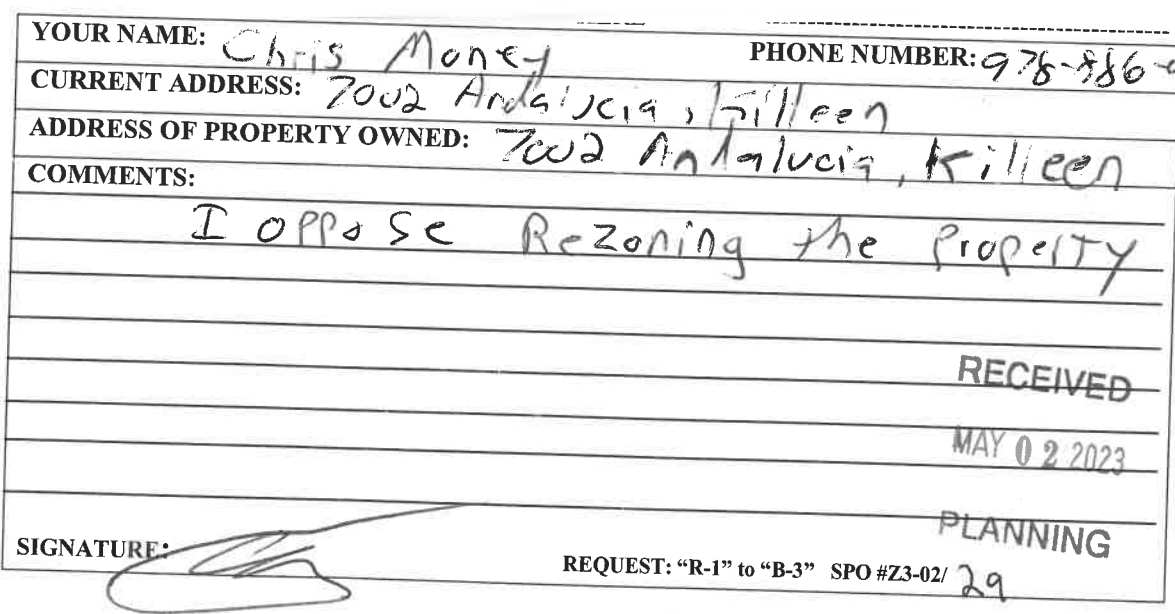 YOUR NAME: Chris Money PHONE NUMBER: 978-886-
CURRENT ADDRESS: 7002 Andalucia, Killeen
ADDRESS OF PROPERTY OWNED: 7002 Andalucia, Killeen
COMMENTS:
I oppose Rezoning the Property
RECEIVED
MAY 02 2023
PLANNING
SIGNATURE:
REQUEST: “R-1” to “B-3” SPO #Z3-02/ 29